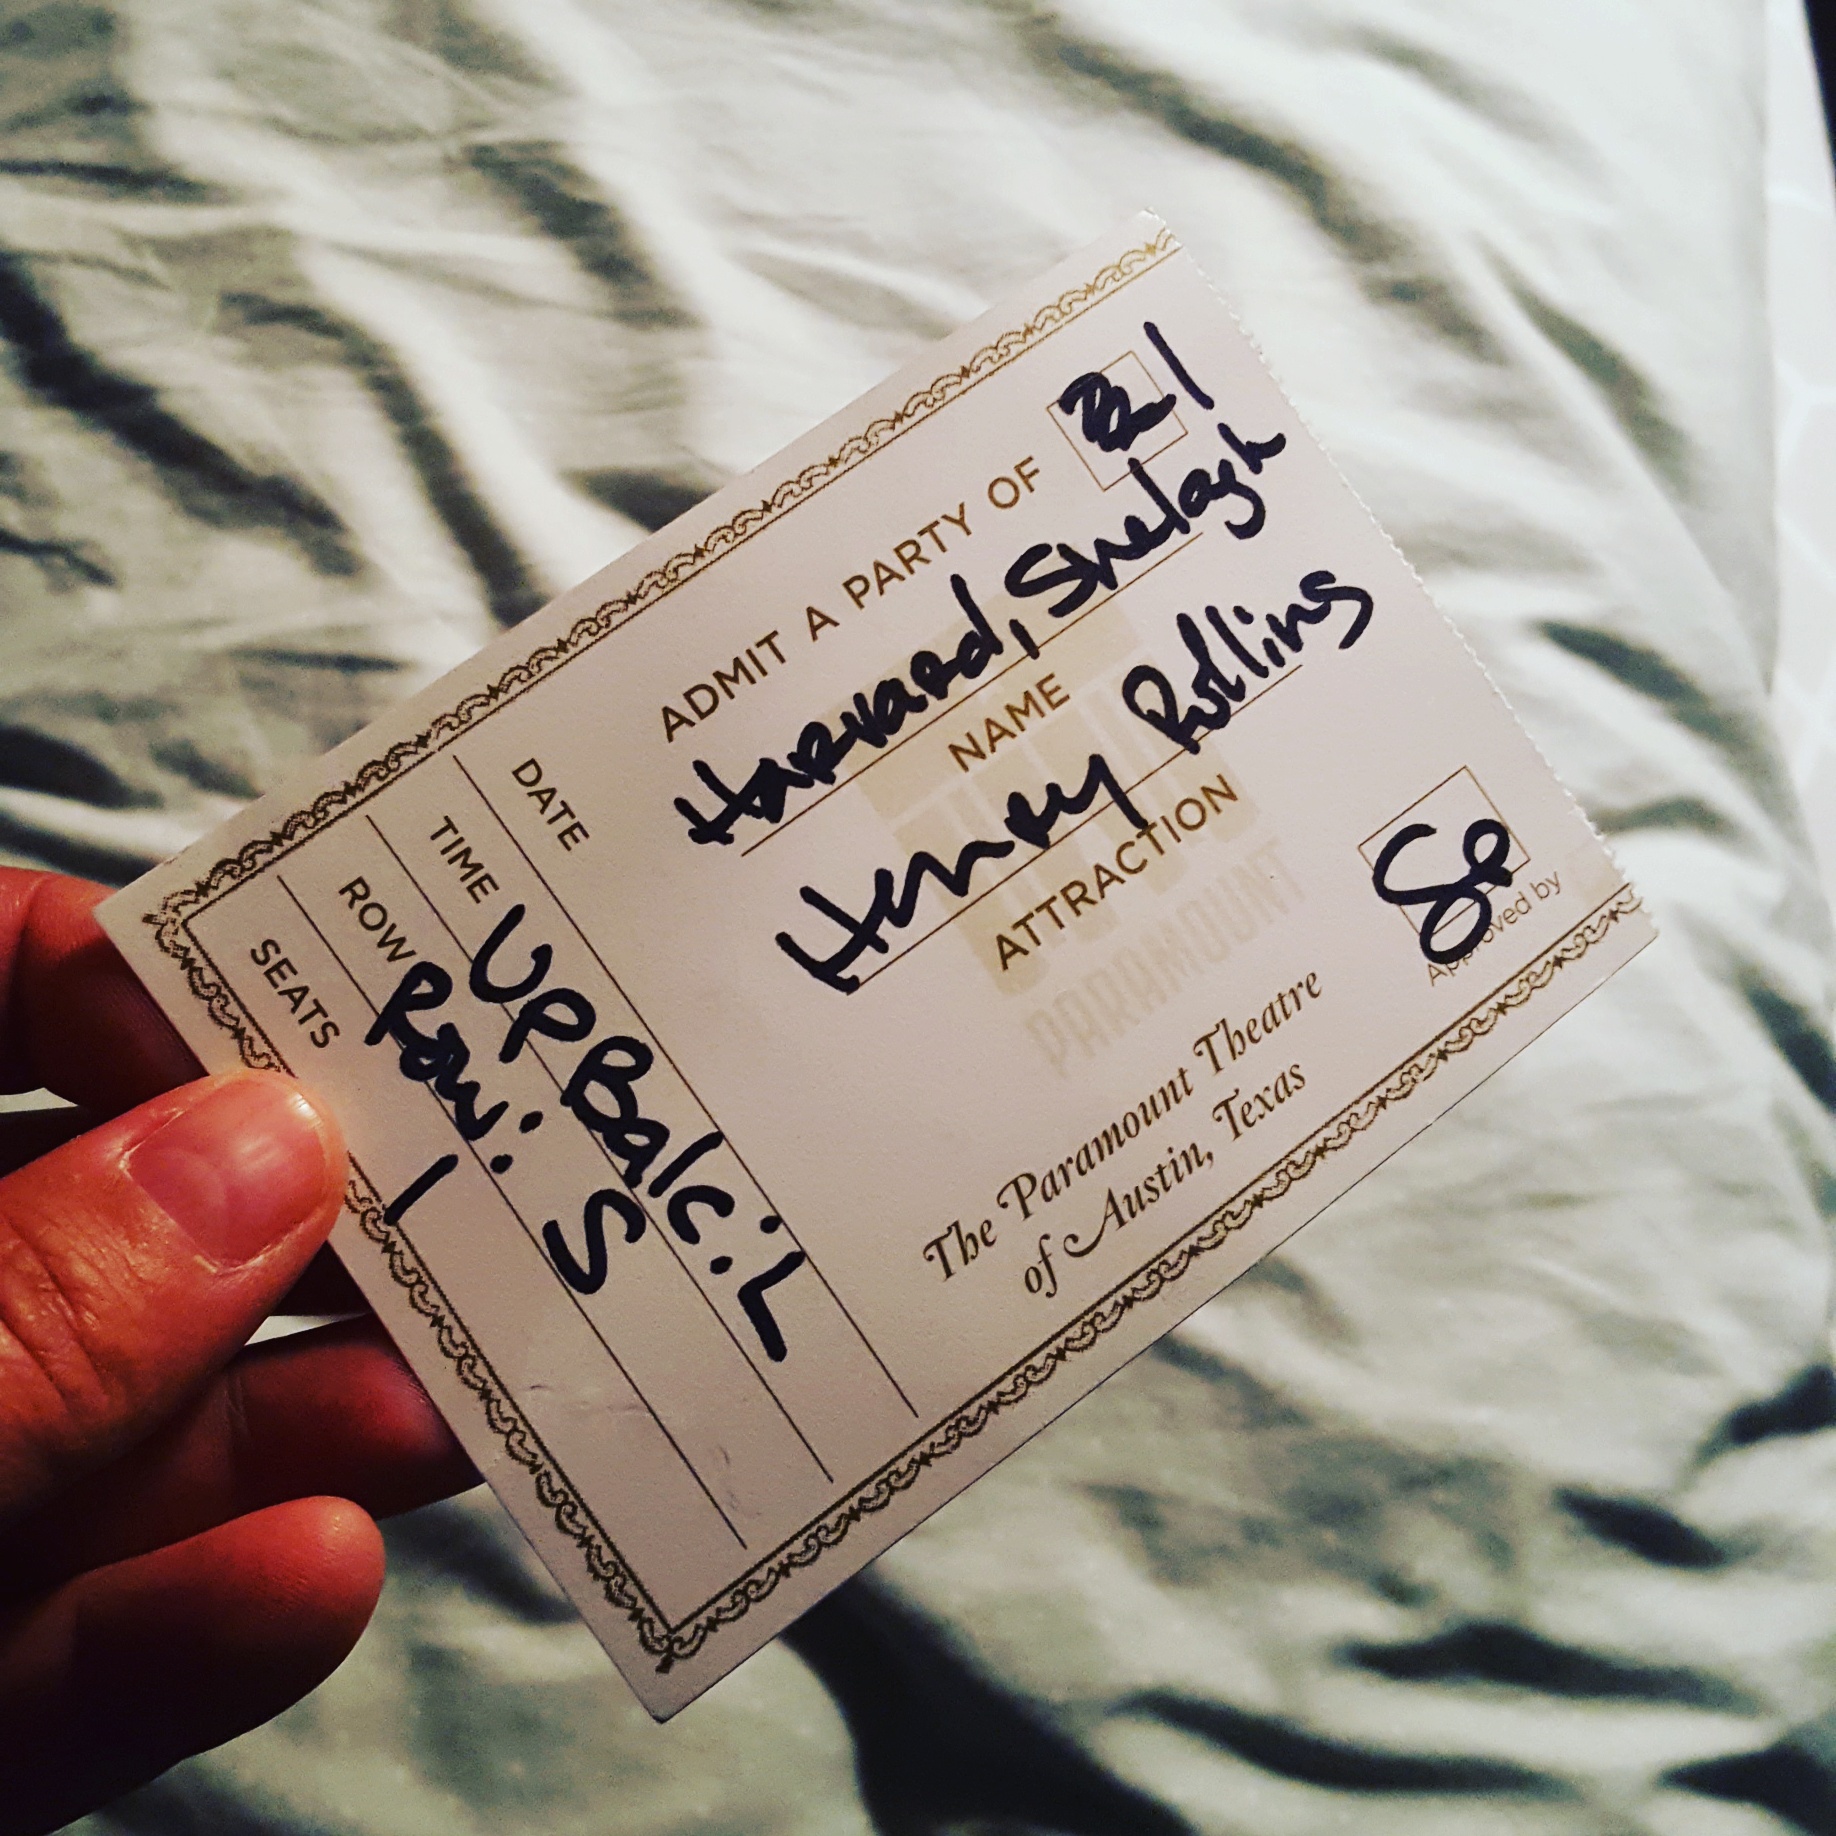 ADMIT A PARTY OF 1
Harvard, Shelagh
NAME
Henry Rollins
ATTRACTION
PARAMOUNT
The Paramount Theatre
of Austin, Texas
SP
Approved by
DATE
TIME UPBalc: L
ROW Row: S
SEATS 1